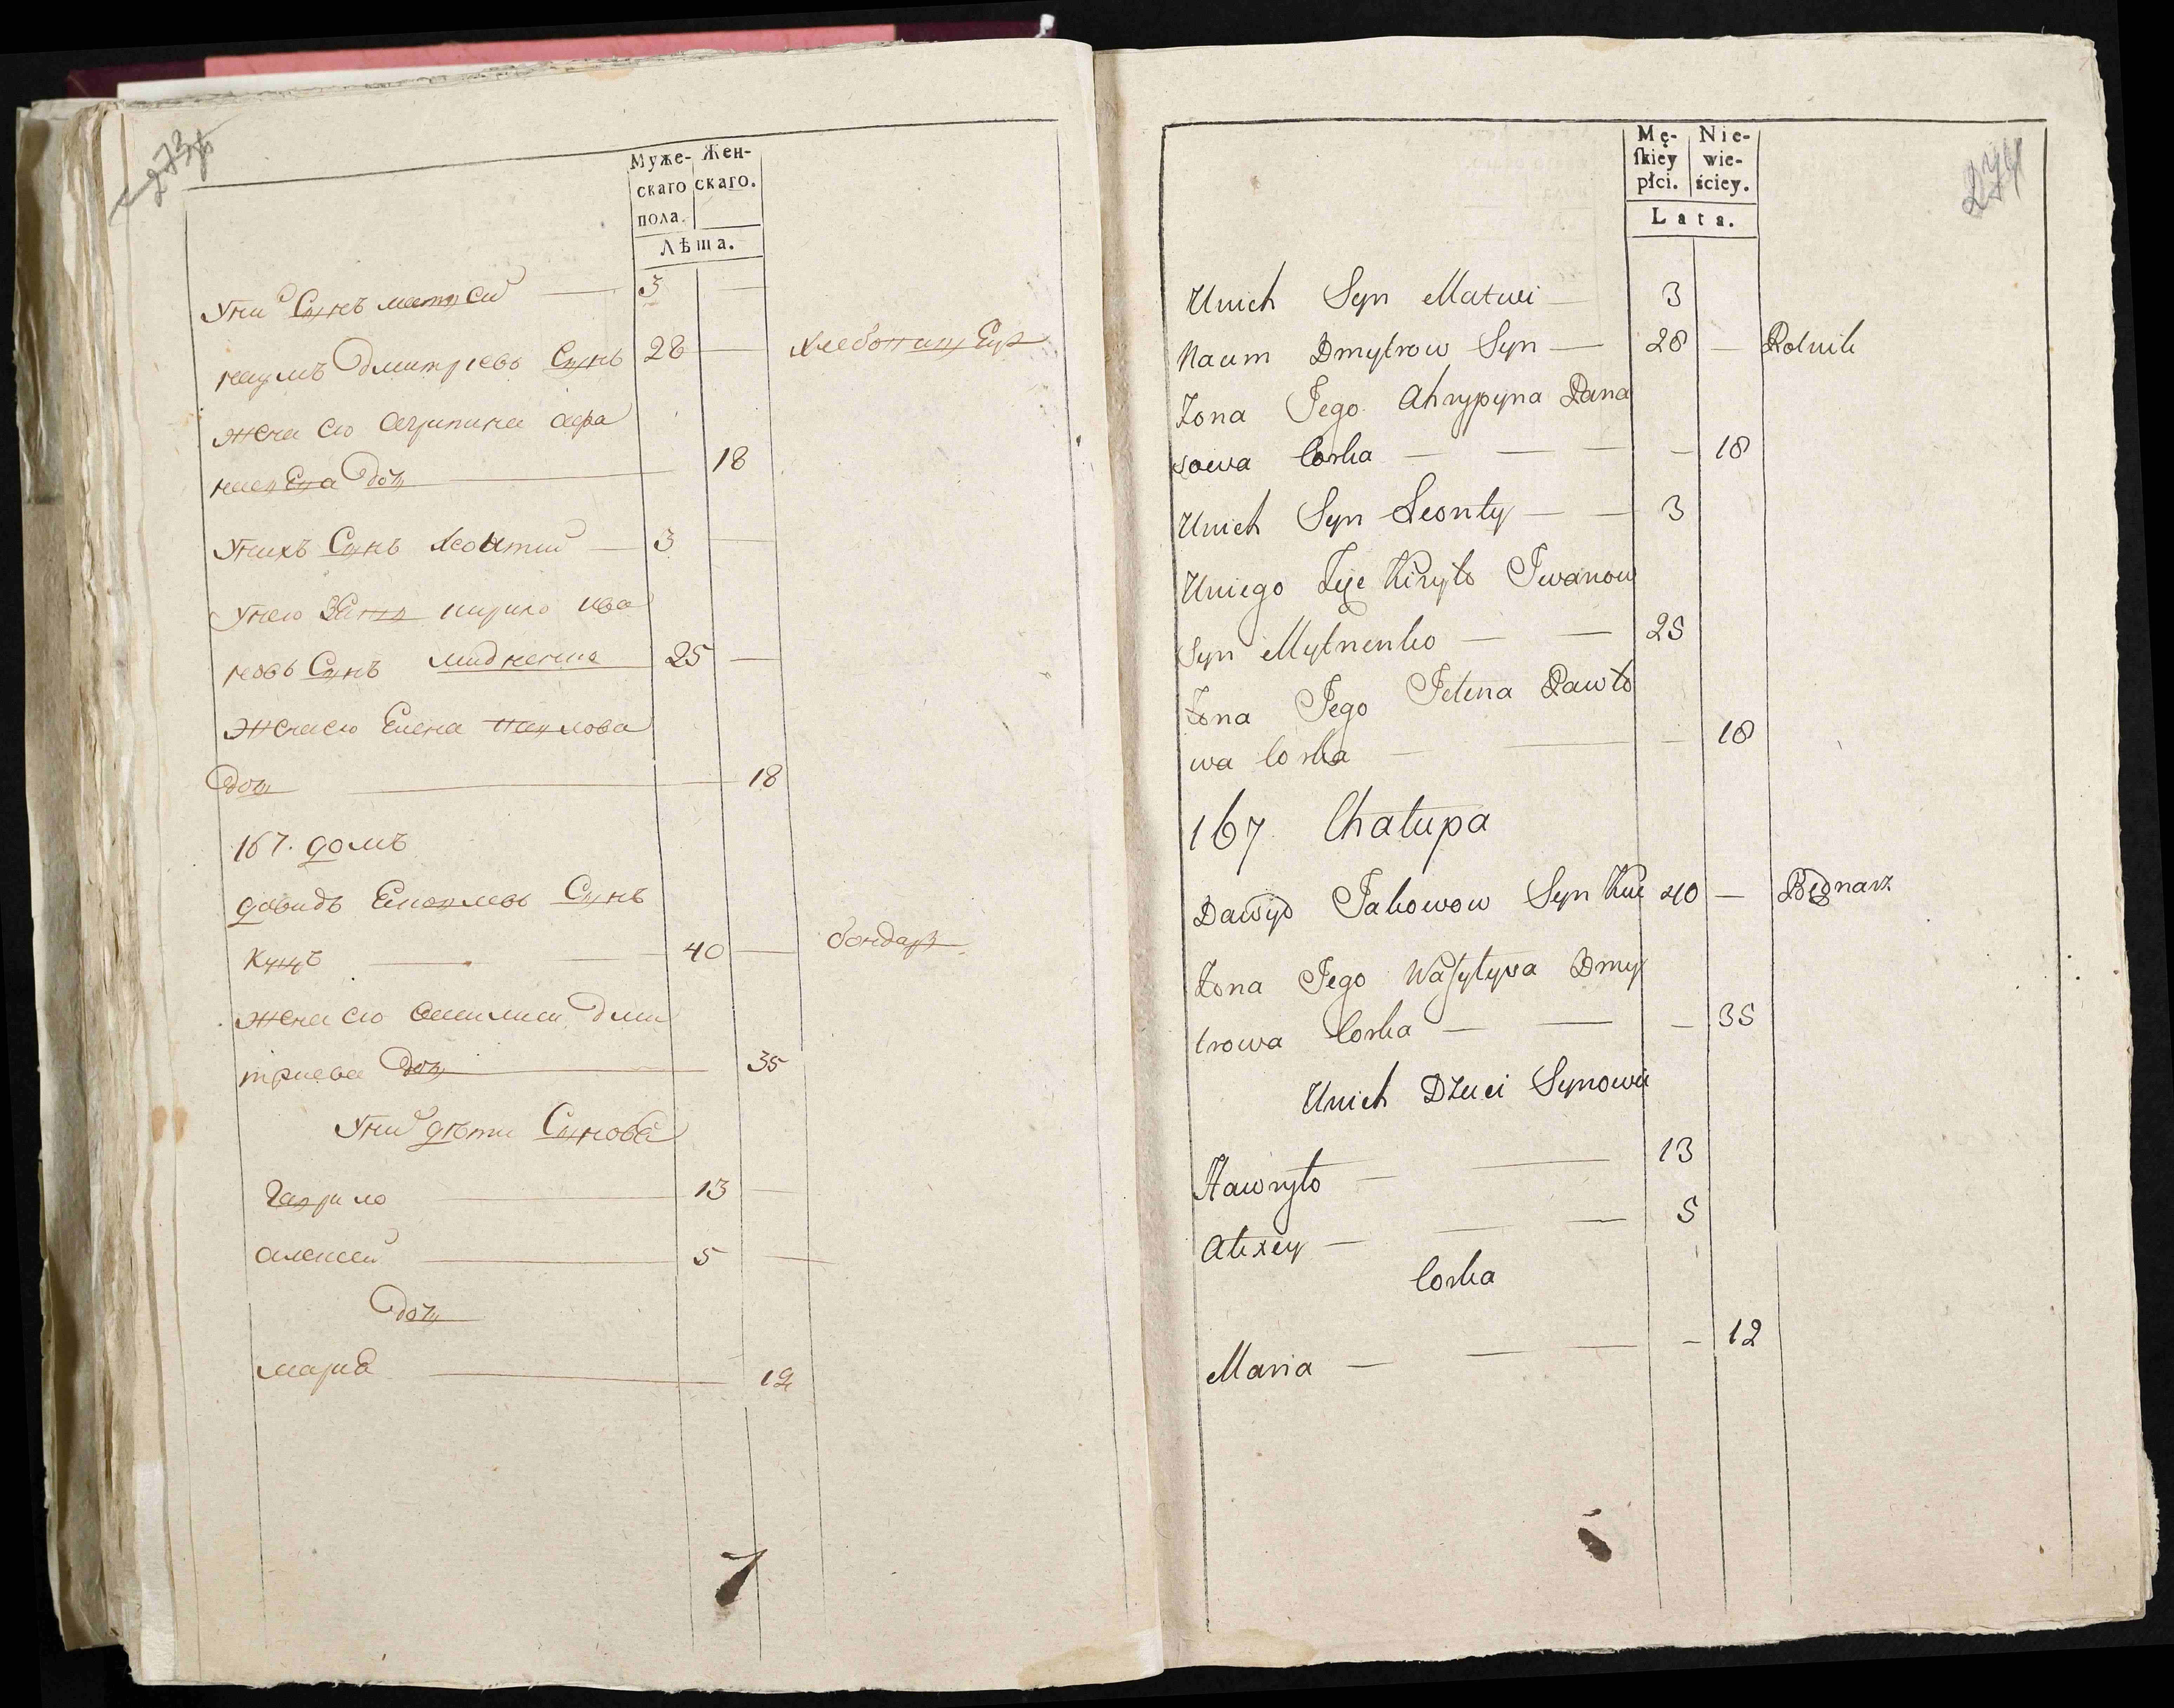 273
Муже- Жен-
скаго скаго.
пола.
Лѣта.
Уни Сынъ матвей — 3 —
наумъ дмитриевъ Сынъ 28 — хлебопашец
жена его агрипина афа
насьева доч — 18
Унихъ Сынъ Леонтий — 3 —
Унего Зять кирило ива
новъ Сынъ 25 —
жена его Елена павлова
доч — 18
167. домъ
давидъ Сынъ
Куцъ — 40 — бондар
жена его дми
триева доч — 35
Уни дѣти Сыновя
Гаврило — 13 —
алексей — 5 —
доч
мария — 12
274
Mę- Nie-
ſkiey wie-
płci. ściey.
Lata.
Unich Syn Matwi — 3
Naum Dmytrow Syn — 28 — Rolnik
Zona Jego Ahrypyna Pana
sowa Corka — — — — 18
Unich Syn Leonty — — 3
Uniego Zięc Kiryło Iwanow
Syn Mytnenko — — 25
Zona Jego Jelena Pawło
wa Corka — — — 18
167 Chałupa
Dawyd Jakowow Syn Kuc 40 — Bednarz
Zona Jego Waſylyna Dmy
trowa Corka — — — 35
Unich Dzieci Synowie
Hawryło — — 13
Alexey — — — 5
Corka
Maria — — — — 12